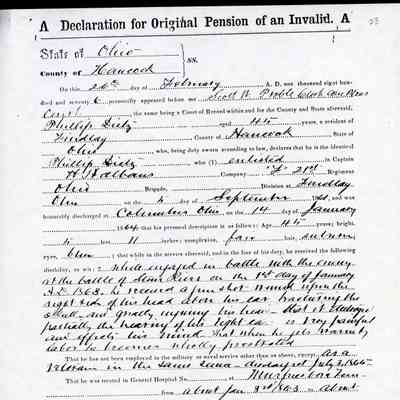 A Declaration for Original Pension of an Invalid. A
State of Ohio
County of Hancock } SS.
On this 26th day of February A. D. one thousand eight hun-
dred and seventy 6 personally appeared before me Scott W. Preble Clerk
Court the same being a Court of Record within and for the County and State aforesaid,
Phillip Dietz aged 45 years, a resident of
Findlay County of Hancock State of
Ohio who, being duly sworn according to law, declares that he is the identical
Phillip Dietz who (1) enlisted in Captain
H Company "F" 21st Regiment
Ohio Brigade, Division at Findlay
Ohio on the day of September and was
honorably discharged at Columbus Ohio on the 14 day of January
1864 that his personal description is as follows: Age 45 years; height,
11 inches; complexion, fair hair, auburn;
eyes, that while in the service aforesaid, and in the line of his duty, he received the following
disability, to wit: while engaged in battle with the enemy
at the battle of Stone River on the 1st day of January
A.D. 1863. he received a gun shot wound upon the
right side of his head above his ear fracturing the
skull and greatly injuring his head that it destroys
partially the hearing of his right ear is very painful
and effects his mind that when he gets warm by
labor he becomes wholly prostrated
That he has not been employed in the military or naval service other than as above, except as a
Veteran in the same discharged July 2 1865
That he was treated in General Hospital No. at Murfreesboro Tenn
from about Jan 3rd 1863 about